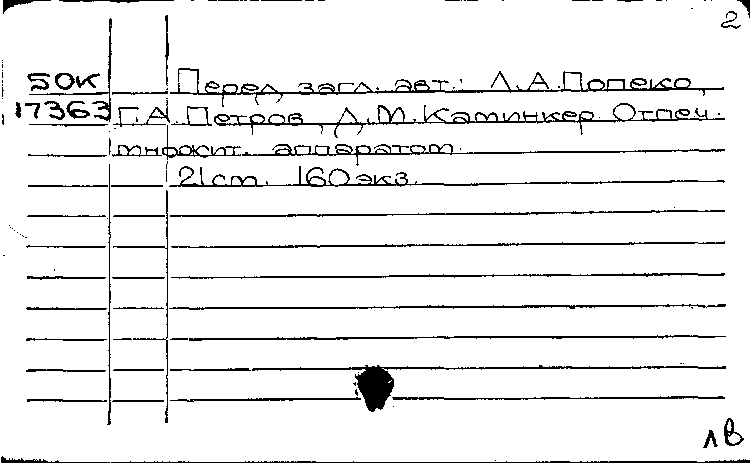 2
БОК Перед загл. авт.: Л.А.Попеко,
17363 Г.А.Петров, Д.М.Каминкер. Отпеч.
множит. аппаратом.
21 cm. 160 экз.
лв